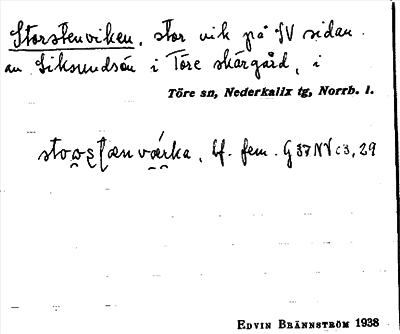 Storstenviken, stor vik på SV sidan
av Siksundsön i Töre skärgård, i
Töre sn, Nederkalix tg, Norrb. l.
bf. fem. G 37 NV c3, 29
EDVIN BRÄNNSTRÖM 1938